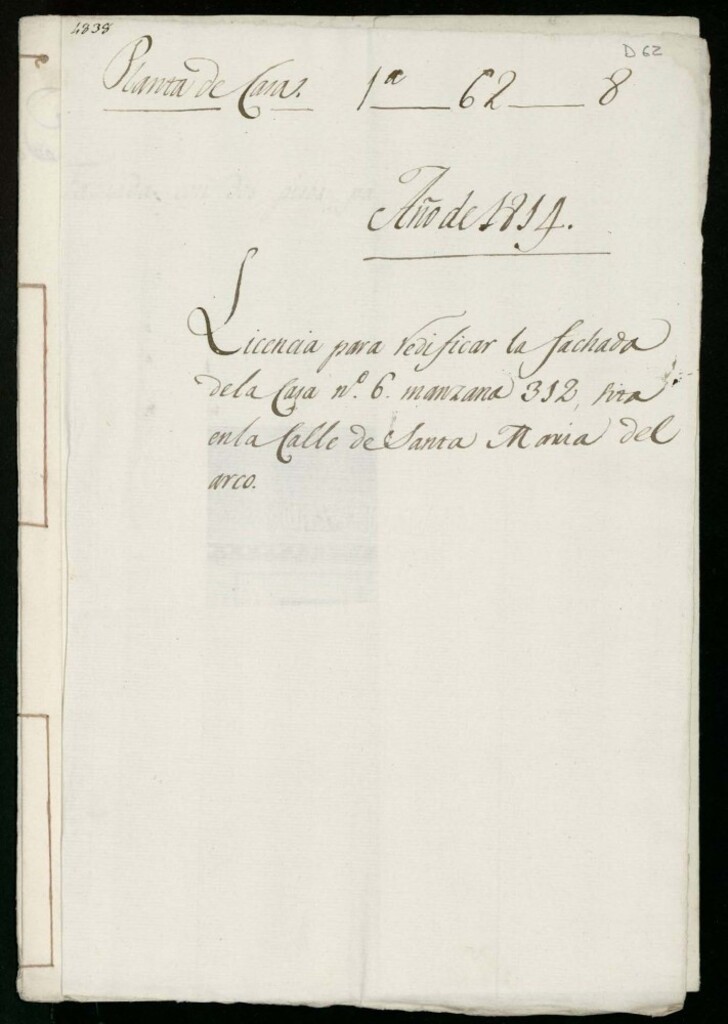 4838
D 62
Planta de Casas. 1ª 62 8
Año de 1814.
Licencia para redificar la fachada
de la Casa nº. 6. manzana 312, sita
en la Calle de Santa Maria del
arco.